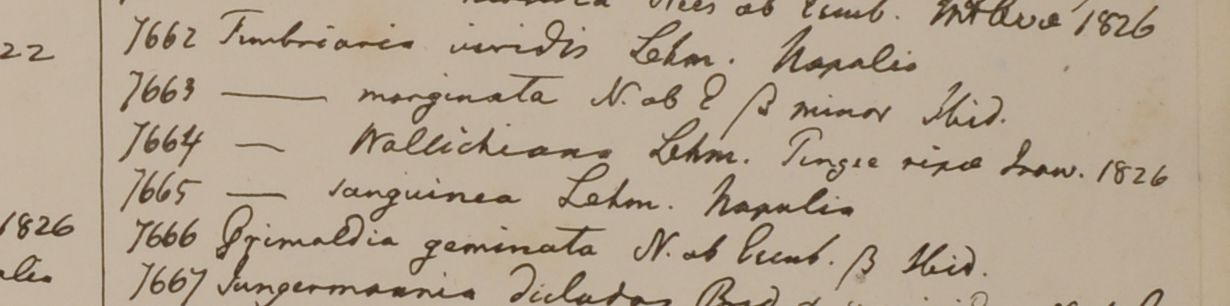 Nees ab Esenb. Mt Ava 1826
22 7662 Fimbriaria viridis Lehm. Napalia
7663 —— marginata N. ab E β minor Ibid.
7664 — Wallichiana Lehm. ripæ Iraw. 1826
7665 — sanguinea Lehm. Napalia
1826 7666 Grimaldia geminata N. ab Esenb. β Ibid.
7667 Jungermannia